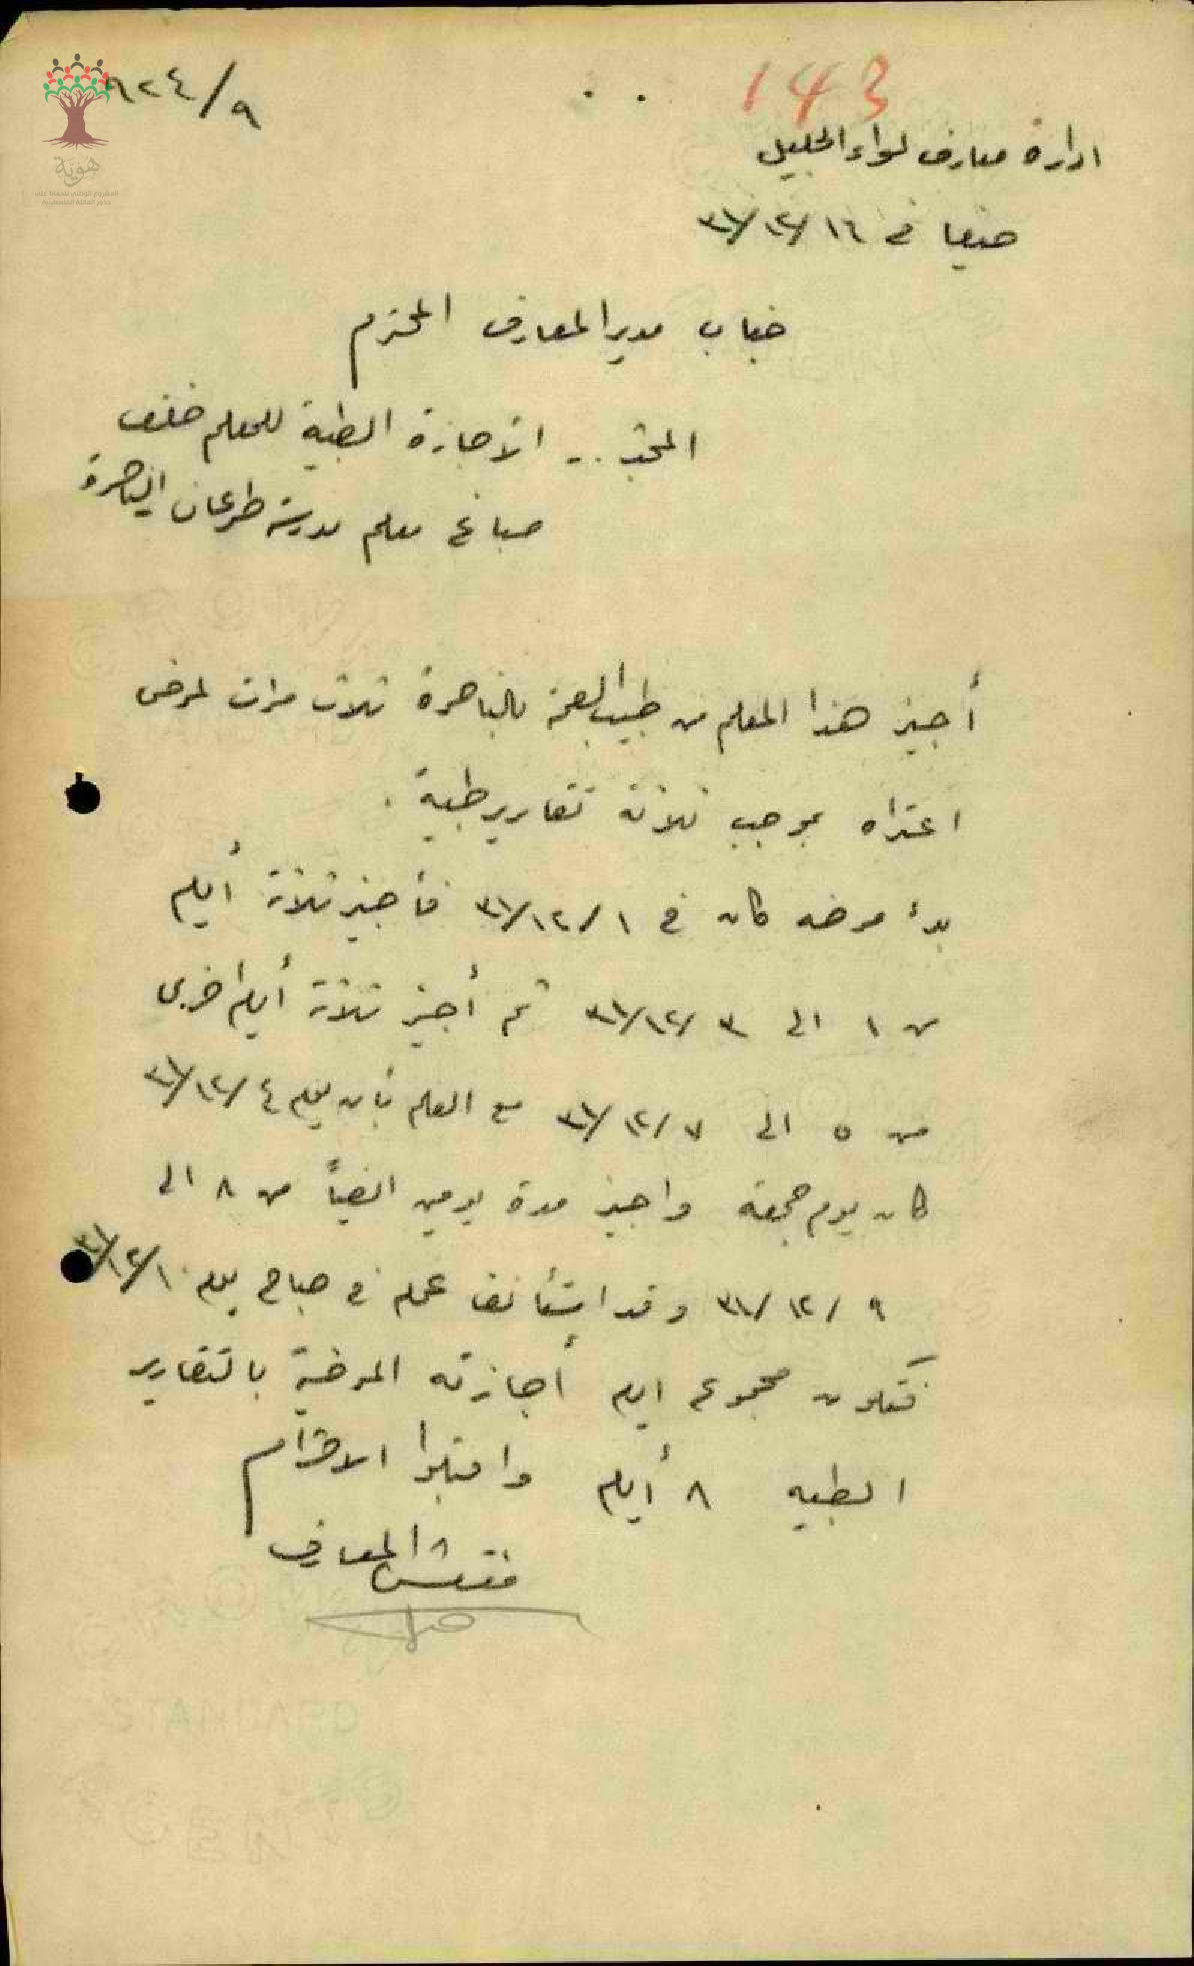 ٩٢٤/٩
143
ادارة معارف لواء الجليل
حيفا في ١٦/١٢/٣١
جناب مدير المعارف المحترم
المبحث .. الأجازة الطبية للمعلم خلف
صباغ معلم مدرسة طرعان الناصرة
أجيز هذا المعلم من طبيب الصحة بالناصرة ثلاث مرات لمرض
اعتراه بموجب ثلاثة تقارير طبية .
بدء مرضه كان في ١/١٢/٣١ فأجيز ثلاثة أيام
من ١ الى ٣/١٢/٣١ ثم أجيز ثلاثة أيام اخرى
من ٥ الى ٧/١٢/٣١ مع العلم بأن يوم ٤/١٢/٣١
كان يوم جمعة واجيز مدة يومين ايضاً من ٨ الى
٩/١٢/٣١ وقد استأنف عمله في صباح يوم ١٠/١٢/٣١
فتكون مجموع ايام أجازته المرضية بالتقارير
الطبيه ٨ أيام واقبلوا الاحترام
مفتش المعارف
هوية